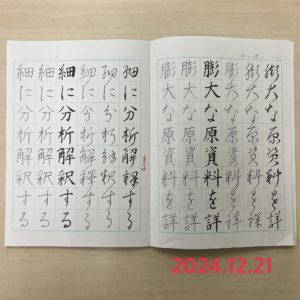 膨大な原資料を詳
膨大な原資料を詳
膨大な原資料を詳
膨大な原資料を詳
膨大な原資料を詳
膨大な原資料を詳
細に分析解釋する
細に分析解釋する
細に分析解釋する
細に分析解釈する
細に分析解釈する
細に分析解釈する
2024.12.21